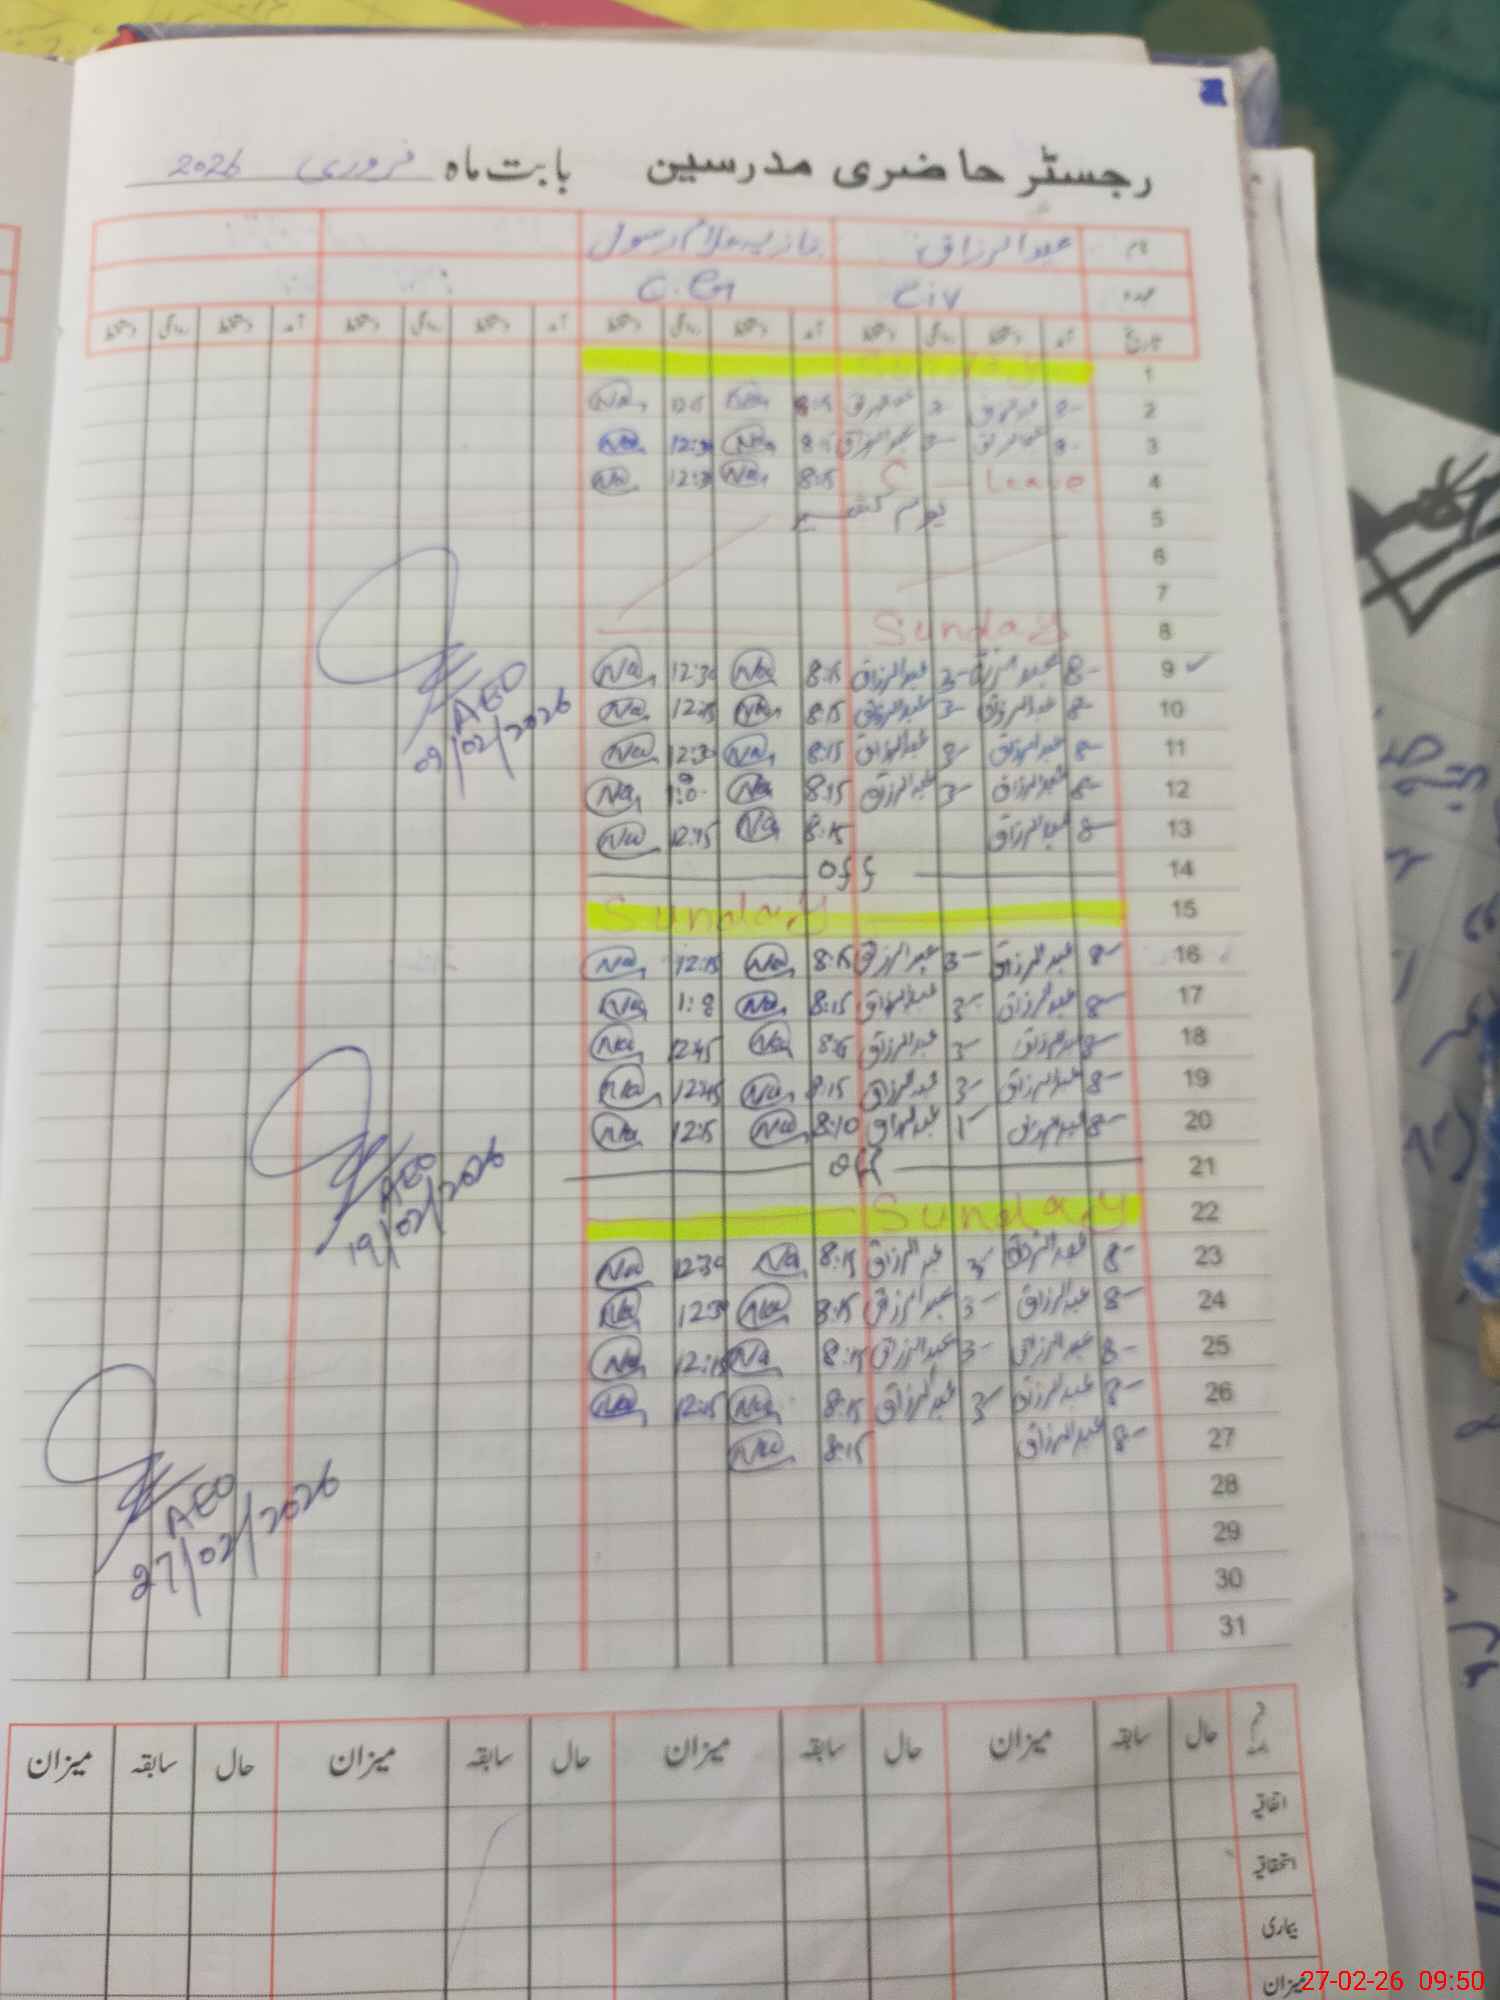 رجسٹر حاضری مدرسین بابت ماہ فروری 2026
نام عبدالرزاق نازیہ غلام رسول
عہدہ Civ
تاریخ آمد دستخط روانگی دستخط آمد دستخط روانگی دستخط آمد دستخط روانگی دستخط آمد دستخط روانگی دستخط
1
2 8- عبدالرزاق عبدالرزاق 8:15 Na Na
3 8- عبدالرزاق عبدالرزاق Na 12:30 Na
4 Leave - C 8:15 Na 12:30 Na
5 یوم کشمیر
6
7
8 Sunday
9 8- عبدالرزاق 3- عبدالرزاق 8:15 Na 12:30 Na
10 8- عبدالرزاق 3- عبدالرزاق 8:15 Na Na
11 8- عبدالرزاق 3- عبدالرزاق 8:15 Na 12:30 Na
12 8- عبدالرزاق 3- عبدالرزاق 8:15 Na Na
13 8- عبدالرزاق 8:15 Na 12:15 Na
14 Off
15 Sunday
16 8- عبدالرزاق 3- عبدالرزاق 8:15 Na 12:15 Na
17 8- عبدالرزاق 3- عبدالرزاق 8:15 Na Na
18 8- عبدالرزاق 3- عبدالرزاق Na 12:45 Na
19 8- عبدالرزاق 3- عبدالرزاق 8:15 Na 12:45 Na
20 8- عبدالرزاق 1- عبدالرزاق 8:10 Na 12:15 Na
21 Off
22 Sunday
23 8- عبدالرزاق 3- عبدالرزاق 8:15 Na 12:30 Na
24 8- عبدالرزاق 3- عبدالرزاق 8:15 Na 12:30 Na
25 8- عبدالرزاق 3- عبدالرزاق 8:15 Na 12:15 Na
26 8- عبدالرزاق 3- عبدالرزاق 8:15 Na 12:15 Na
27 8- عبدالرزاق 8:15 Na
28
29
30
31
AEO
09/02/2026
AEO
19/02/2026
AEO
27/02/2026
حال سابقہ میزان حال سابقہ میزان حال سابقہ میزان حال سابقہ میزان
اتفاقیہ
استحقاقیہ
بیماری
میزان
27-02-26 09:50